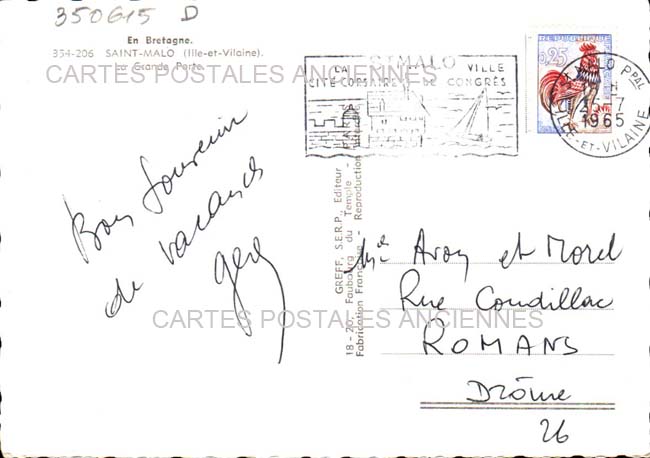 350615 D
En Bretagne.
354-206 SAINT-MALO (Ille-et-Vilaine).
La Grande Porte.
CARTES POSTALES ANCIENNES
ST MALO
LA VILLE
CITÉ CORSAIRE DE CONGRÈS
REPUBLIQUE
0,25
ST MALO PPAL
26-7
1965
ILLE-ET-VILAINE
Bon Souvenir
de vacances
GREFF, S.E.R.P., Editeur
18-20, Faubourg du Temple - PARIS
Fabrication Française - Reproduction interdite
Avon et Morel
Rue Condillac
ROMANS
Drôme
26
CARTES POSTALES ANCIENNES